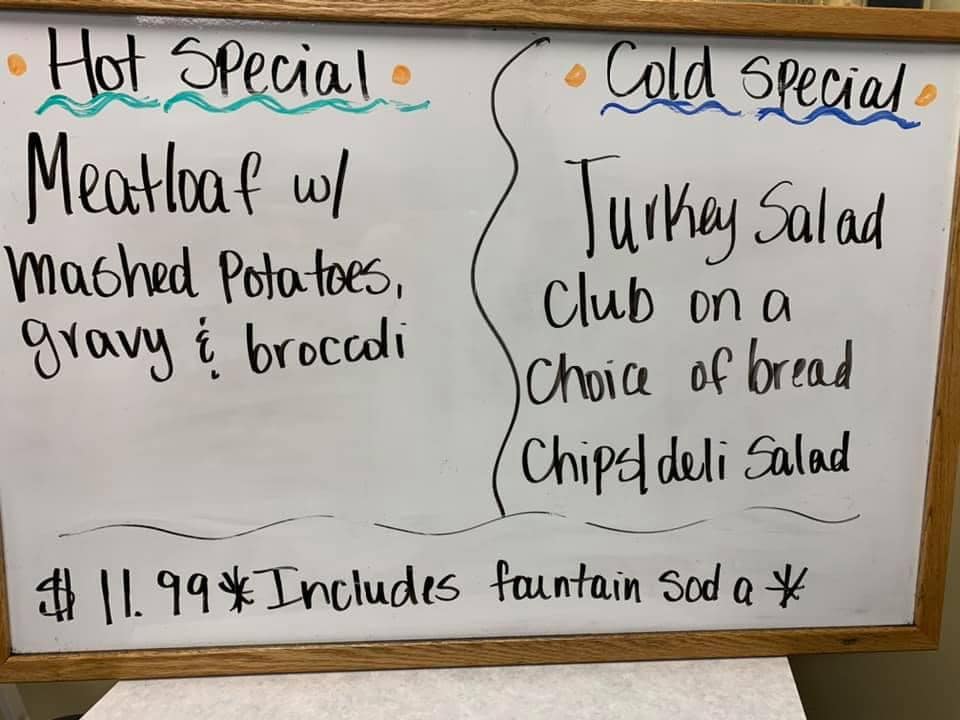 Hot Special
Meatloaf w/
mashed Potatoes,
gravy & broccoli
Cold Special
Turkey Salad
Club on a
Choice of bread
Chips/deli Salad
$11.99*Includes fountain soda*